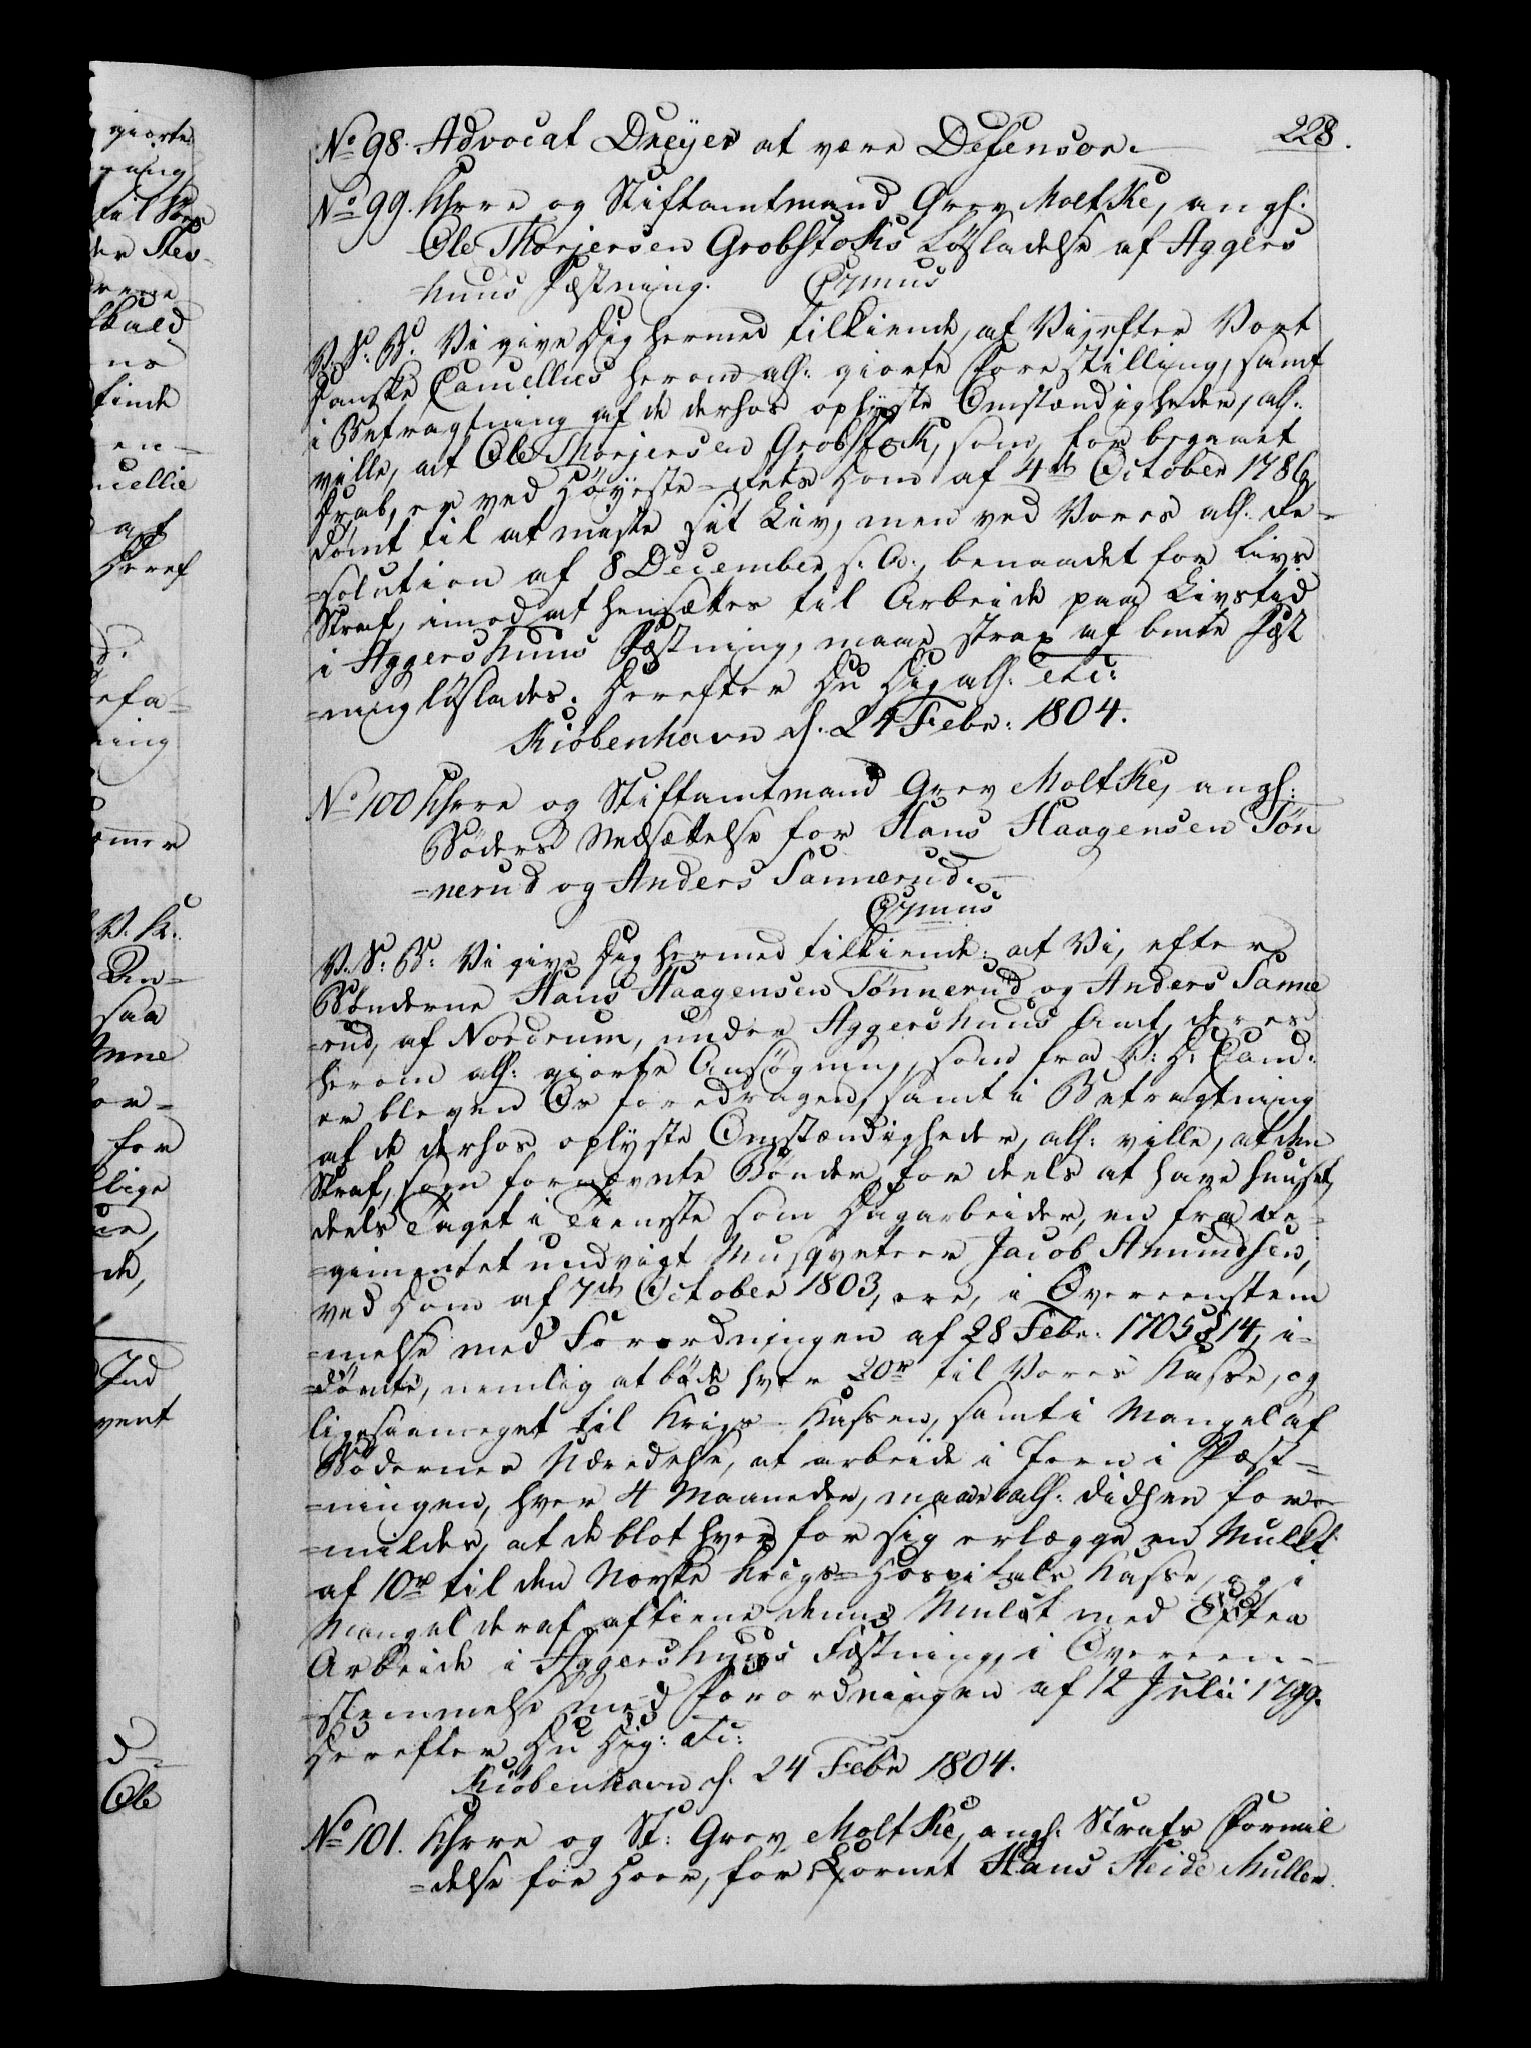 228.
No 98. Advocat Dreyer at være Defensor.
No 99. Khrre og Stiftamtmand Grev Moltke, angl.
Ole Thorjersen Grobstoks Løsladelse af Aggers
=huus Fæstning. Cismus
V. S. B. Vi give Dig hermed tilkiende, at Vi, efter Vort
Danske Cancellies herom alh: giorte Forestilling, samt
i Betragtning af de derhos oplyste Omstændigheder, alh:
ville, at Ole Thorjersen Grobstok, som, for begaaet
Drab, er ved Høyeste-Rets Dom af 4de October 1786
dømt til at miste sit Liv, men ved Vores alh. Re=
=solution af 8 December s. A., benaadet for Livs
Straf, imod at hensættes til Arbeide paa Livstid
i Aggershuus Fæstning, maae strax af bmte Fæst
=ning løslades. Herefter Du Dig alh. etc:
Kiøbenhavn d. 24 Febr: 1804.
No 100 Khrre og Stiftamtmand Grev Moltke, angl:
Bøders Nedsættelse for Hans Haagensen Tøn
=nerud og Anders Sannerud.
Cismus
V. S: B: Vi give Dig hermed tilkiende: at Vi, efter
Bønderne Hans Haagensen Tønnerud og Anders Sanne
=rud, af Nordrum, under Aggershuus Amt, deres
herom alh: giorte Ansøgning, som fra V: D: Canc:
er bleven Os foredragen, samt i Betragtning
af de derhos oplyste Omstændigheder, alh: ville, at den
Straf, som fornævnte Bønder, for deels at have huuset,
deels taget i Tieneste som Dagarbeider, en fra Re=
=gimentet undvigt Musqveteer Jacob Amundsen,
ved Dom af 7de October 1803, ere, i Overeenstem
=melse med Forordningen af 28 Febr: 1705 § 14, i=
=dømte, nemlig at bøde hver 20r til Vores Kasse, og
ligesaameget til Krigs-Kassen, samt i Mangel af
Bødernes Udredelse, at arbeide i Jern i Fæst=
=ningen, hver 4 Maaneder, maae alh: didhen for=
=mildes, at de blot hver for sig erlægge en Mulkt
af 10r til den Norske Krigs-Hospitals Kasse, og i
Mangel deraf aftiene denne Mulct med Extra
Arbeide i Aggershuus Fæstning, i Overeen=
=stemmelse med Forordningen af 12 Julii 1799.
Herefter Du Dig: etc:
Kiøbenhavn d. 24 Febr 1804.
No 101. Khrre og St: Grev Moltke, angl. Strafs Formil
=delse for Hoer, for Cornet Hans Heide Muller.